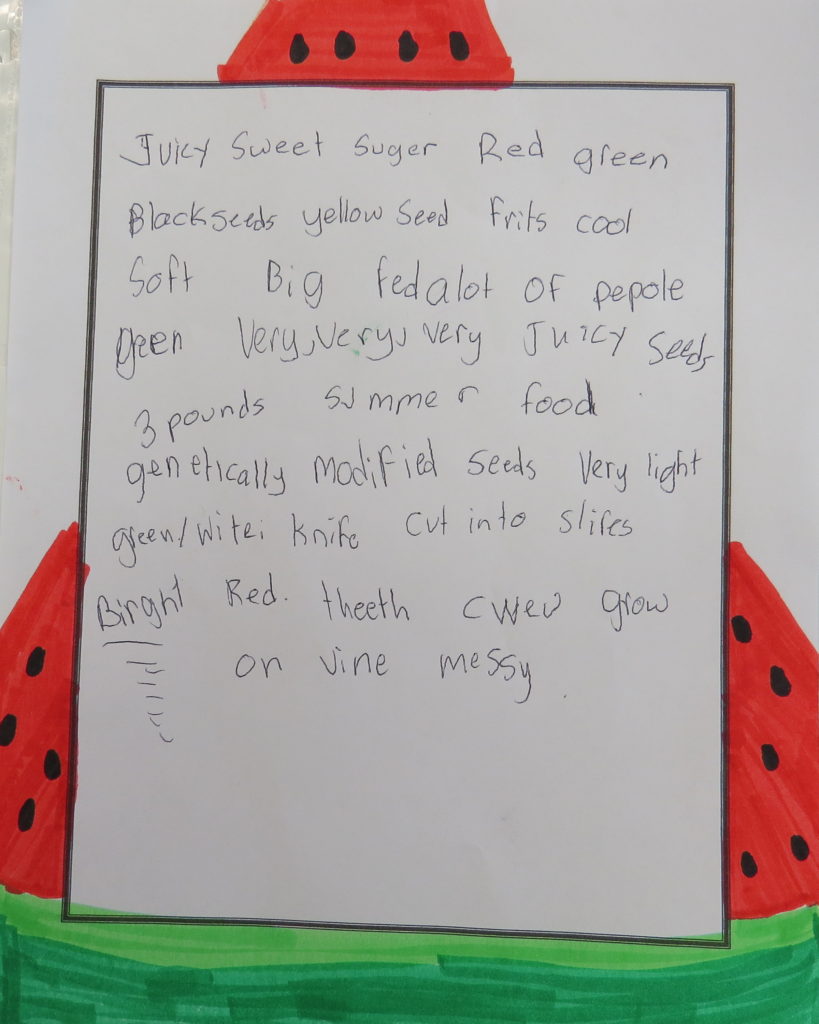 Juicy Sweet Suger Red green
Blackseeds yellow Seed frits cool
Soft Big fed alot of pepole
geen Very, very, very Juicy Seeds
3 pounds summer food
genetically modified seeds Very light
green/wite; knife cut into slifes
Birght Red. theeth cwew grow
on vine messy